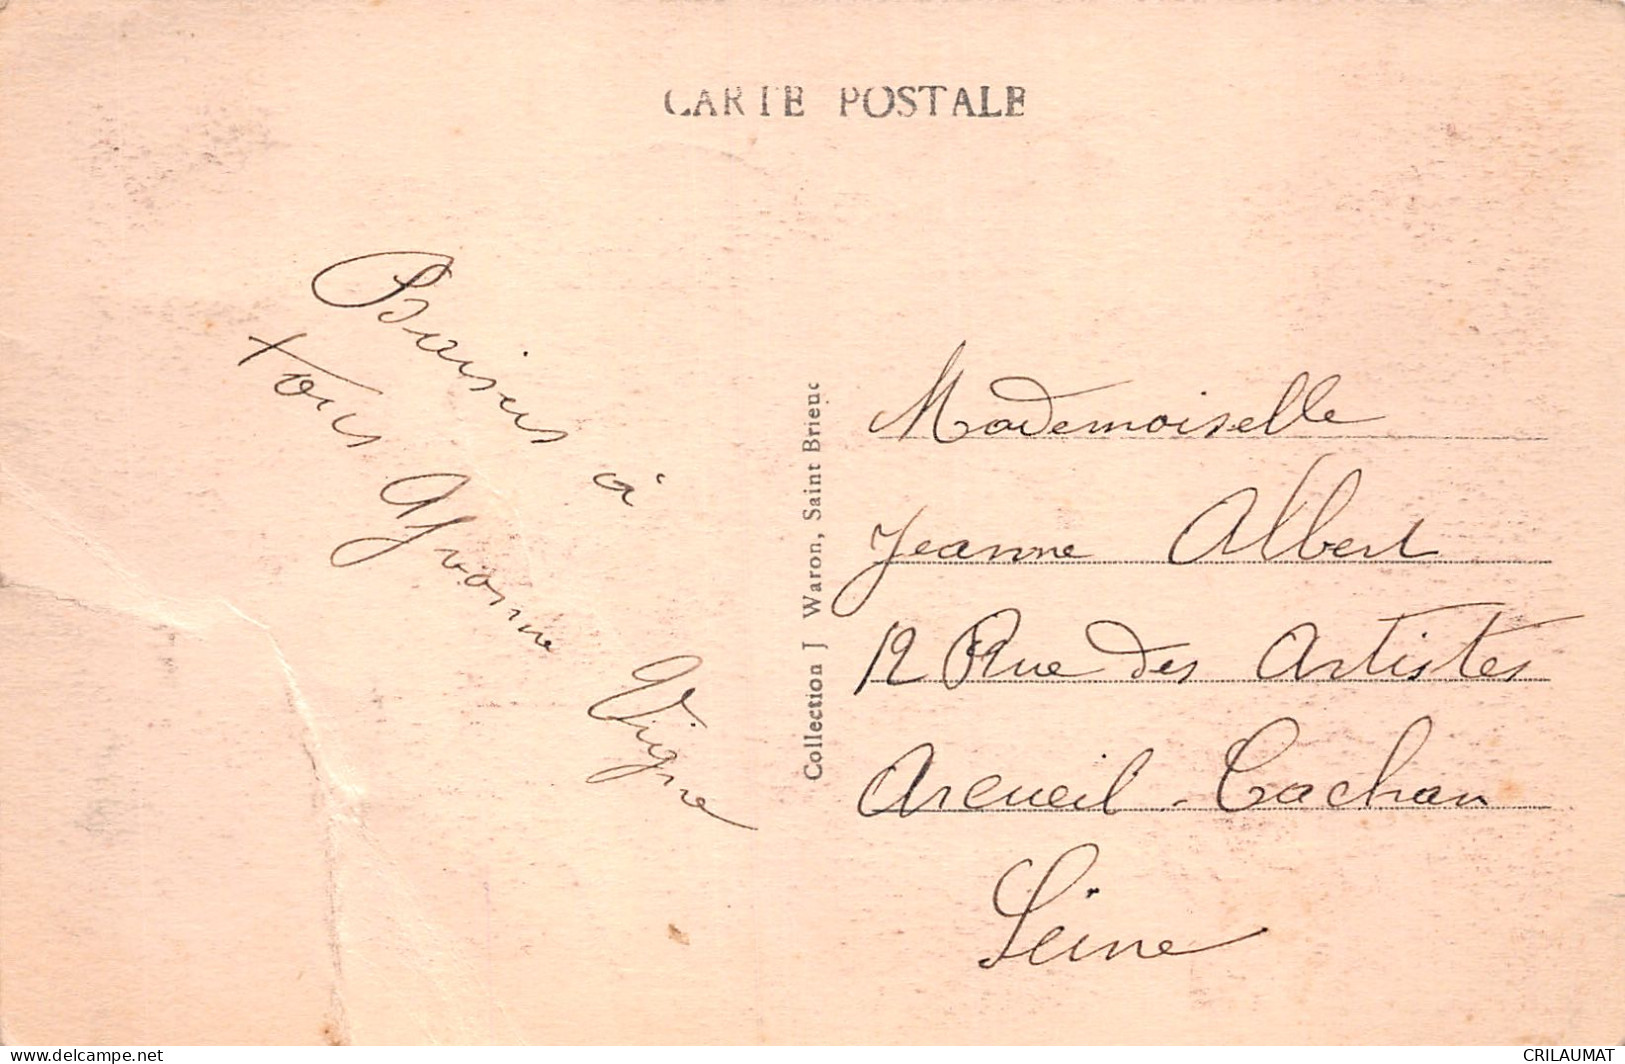 CARTE POSTALE
Baisers à
tous Yvonne Vigne
Collection J Waron, Saint Brieuc
Mademoiselle
Jeanne Albert
12 Rue des Artistes
Arcueil - Cachan
Seine
delcampe.net
CRILAUMAT